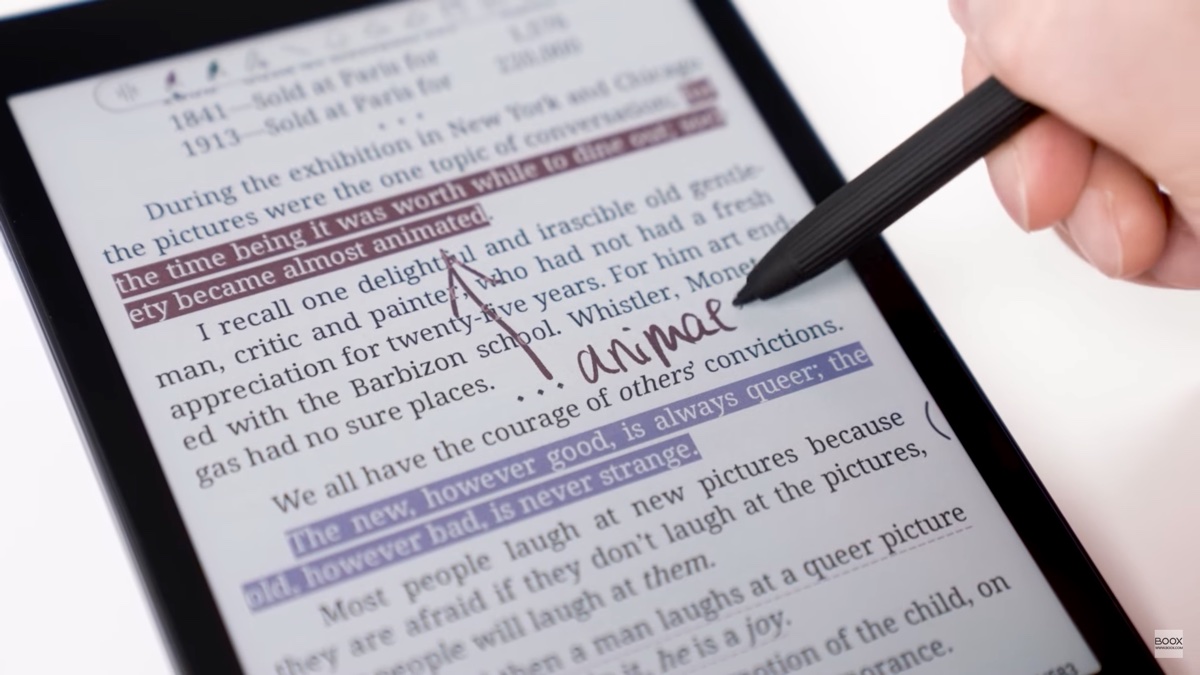 1,376
1841—Sold at Paris for 220,000
1913—Sold at Paris for
. . .
During the exhibition in New York and Chicago
the pictures were the one topic of conversation; for
the time being it was worth while to dine out; soci-
ety became almost animated.
I recall one delightful and irascible old gentle-
man, critic and painter, who had not had a fresh
appreciation for twenty-five years. For him art end-
ed with the Barbizon school. Whistler, Monet
gas had no sure places.
. . .
animae
We all have the courage of others' convictions.
The new, however good, is always queer; the
old, however bad, is never strange.
Most people laugh at new pictures because
they are afraid if they don't laugh at the pictures,
people will laugh at them.
hen a man laughs at a queer picture
it, he is a joy.
otion of the child, on
orance.
BOOX